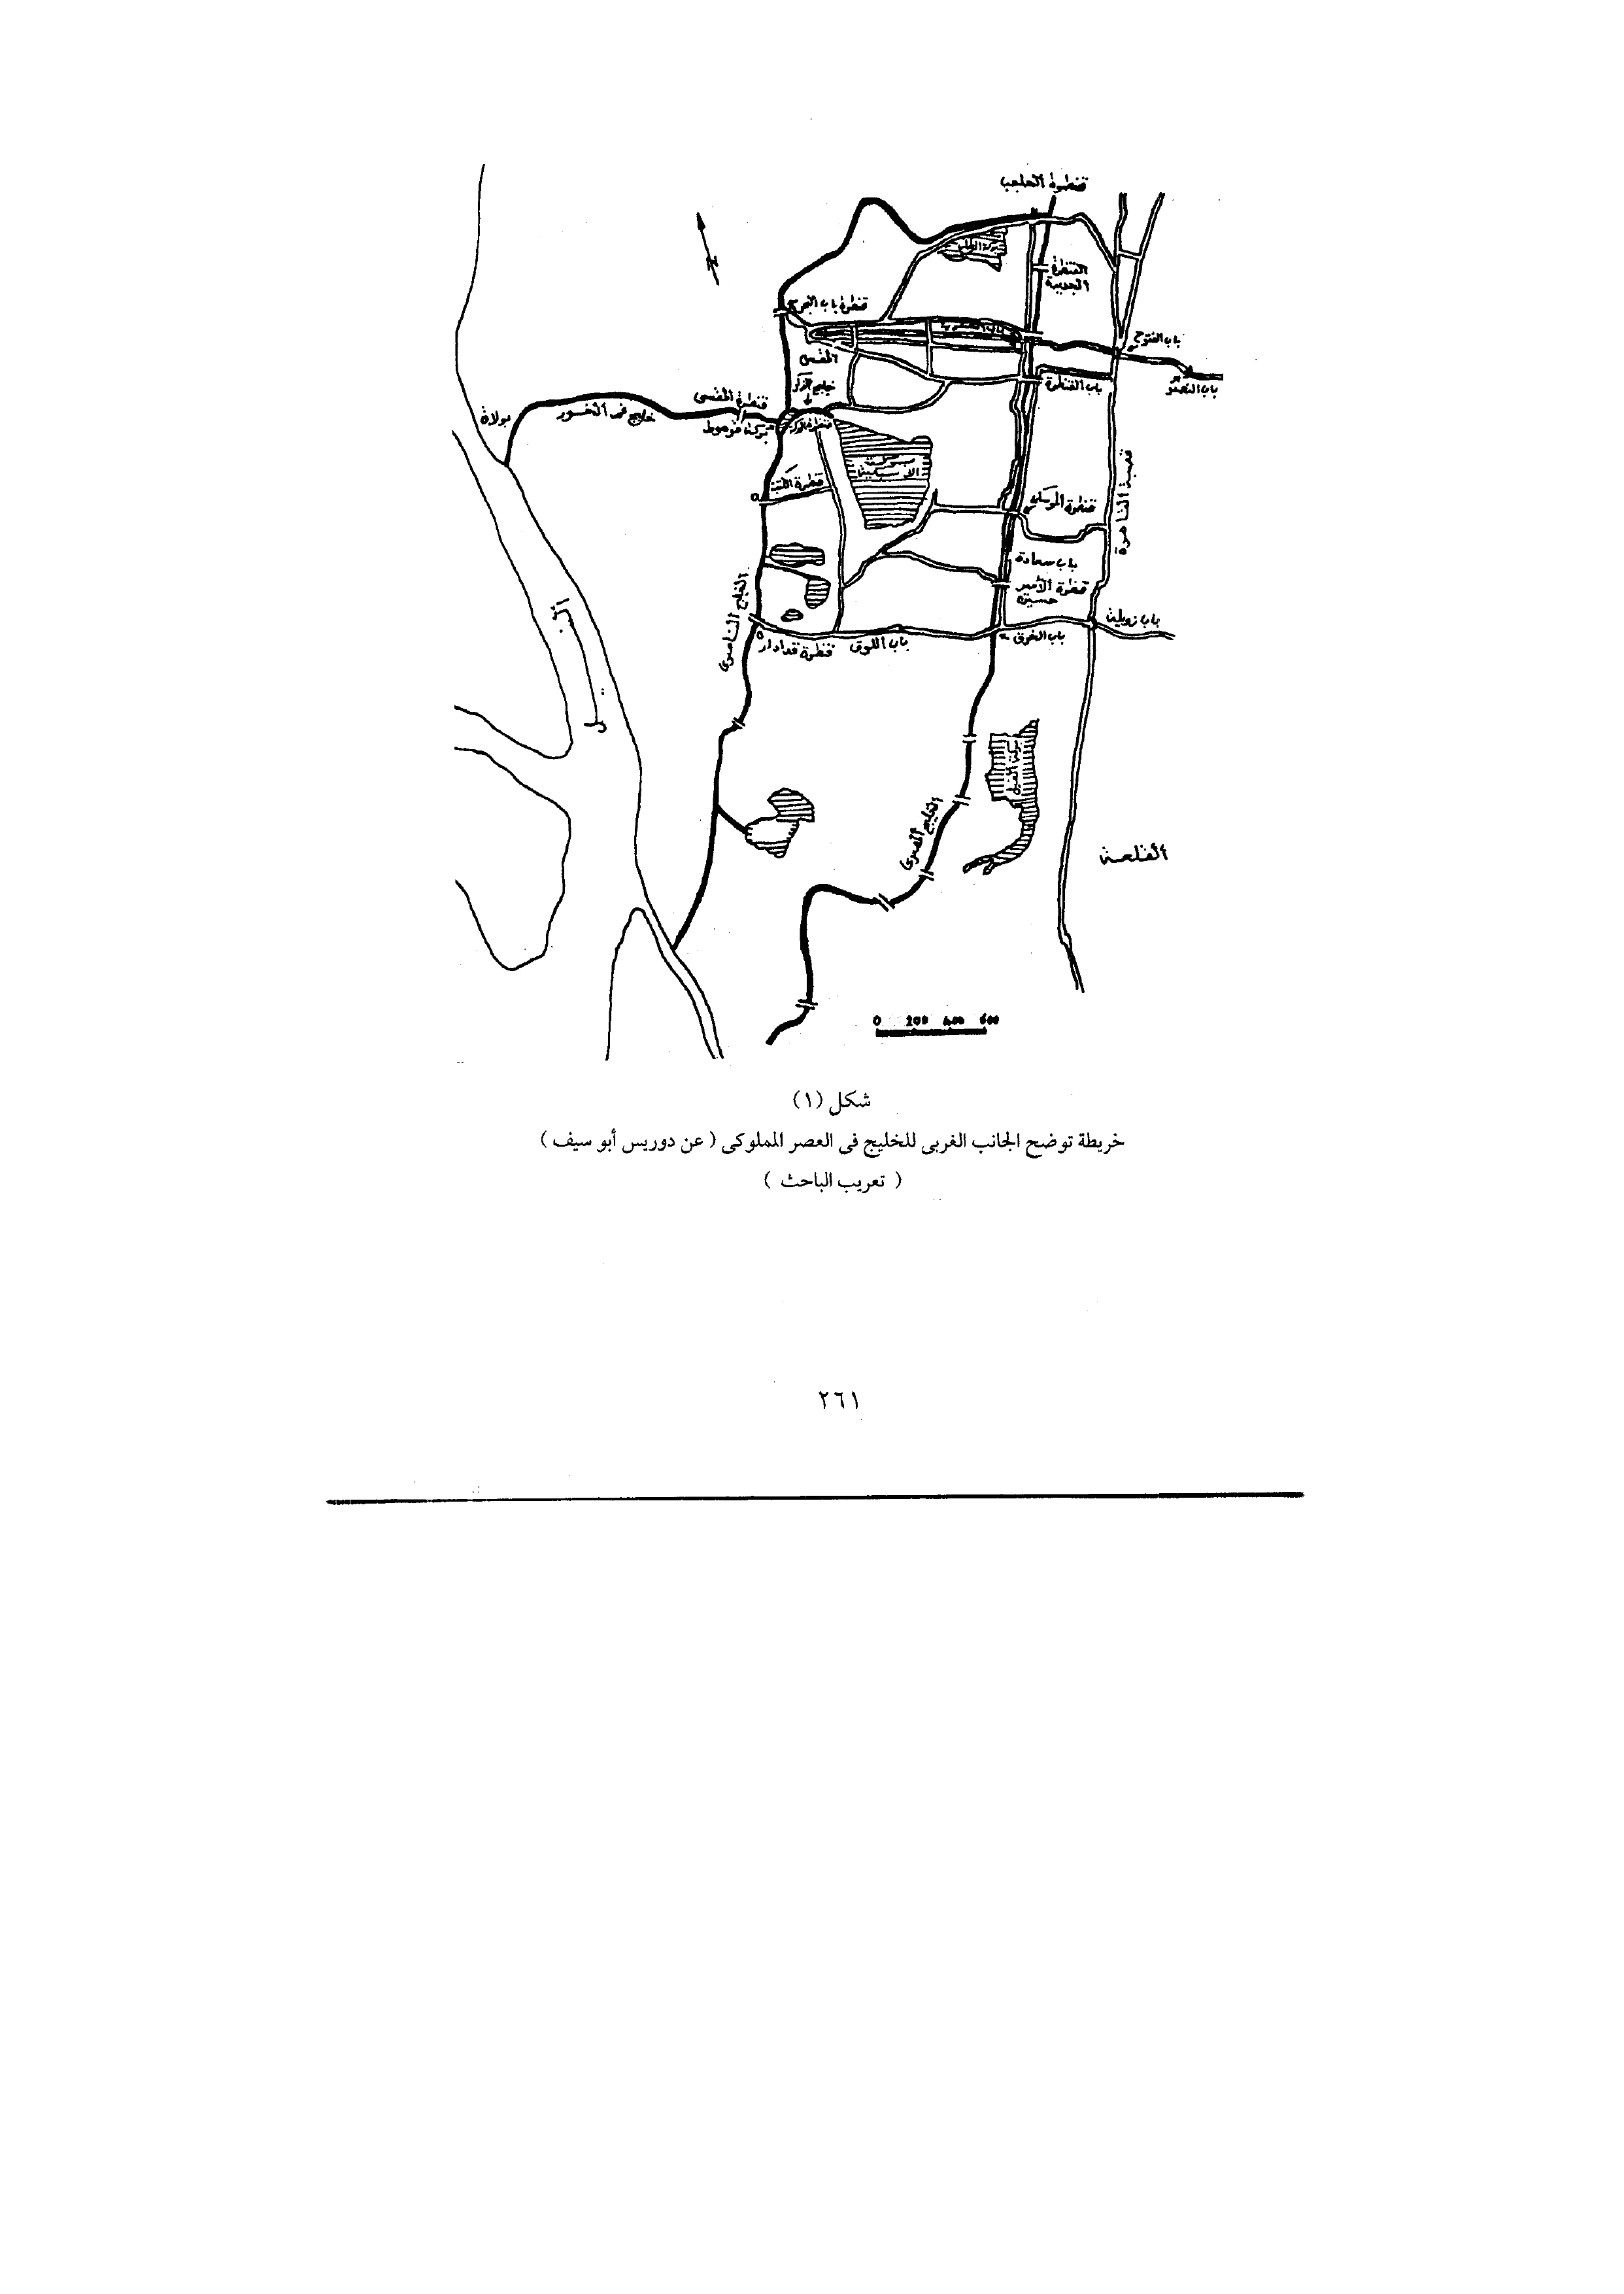 قنطرة الحاجب
القنطرة
الجديدة
قنطرة باب البحر
باب الفتوح
باب النصر
المقس
باب القنطرة
خليج الذكر
قنطرة المقسى
بولاق
خليج فم الخور
بركة قرموط
بركة
الازبكية
قنطرة الموسكى
قصبة القاهرة
باب سعادة
قنطرة الأمير
حسين
باب زويلة
باب الخرق
باب اللوق
قنطرة قدادار
الخليج الناصرى
النيل
بركة الفيل
الخليج المصرى
القلعة
0 200 400 600
شكل (١)
خريطة توضح الجانب الغربى للخليج فى العصر المملوكى ( عن دوريس أبو سيف )
( تعريب الباحث )
٢٦١